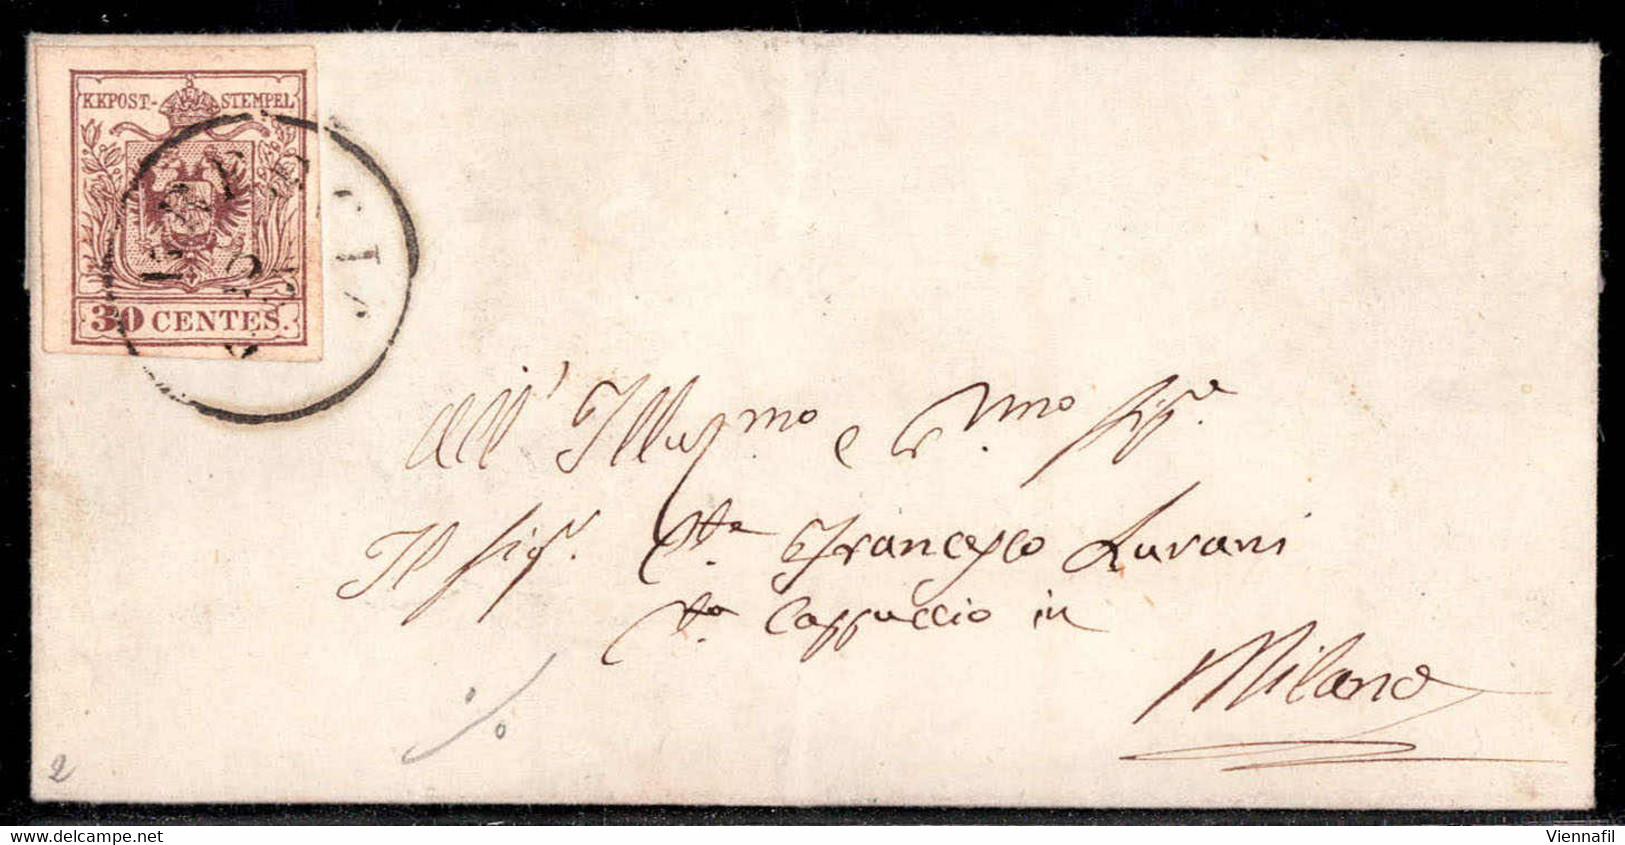 KKPOST- STEMPEL
30 CENTES.
all' Illusmo e mo Sigr
Il Sigr. Cte Francesco Lurani
Cappuccio in
Milano
2
delcampe.net
Viennafil